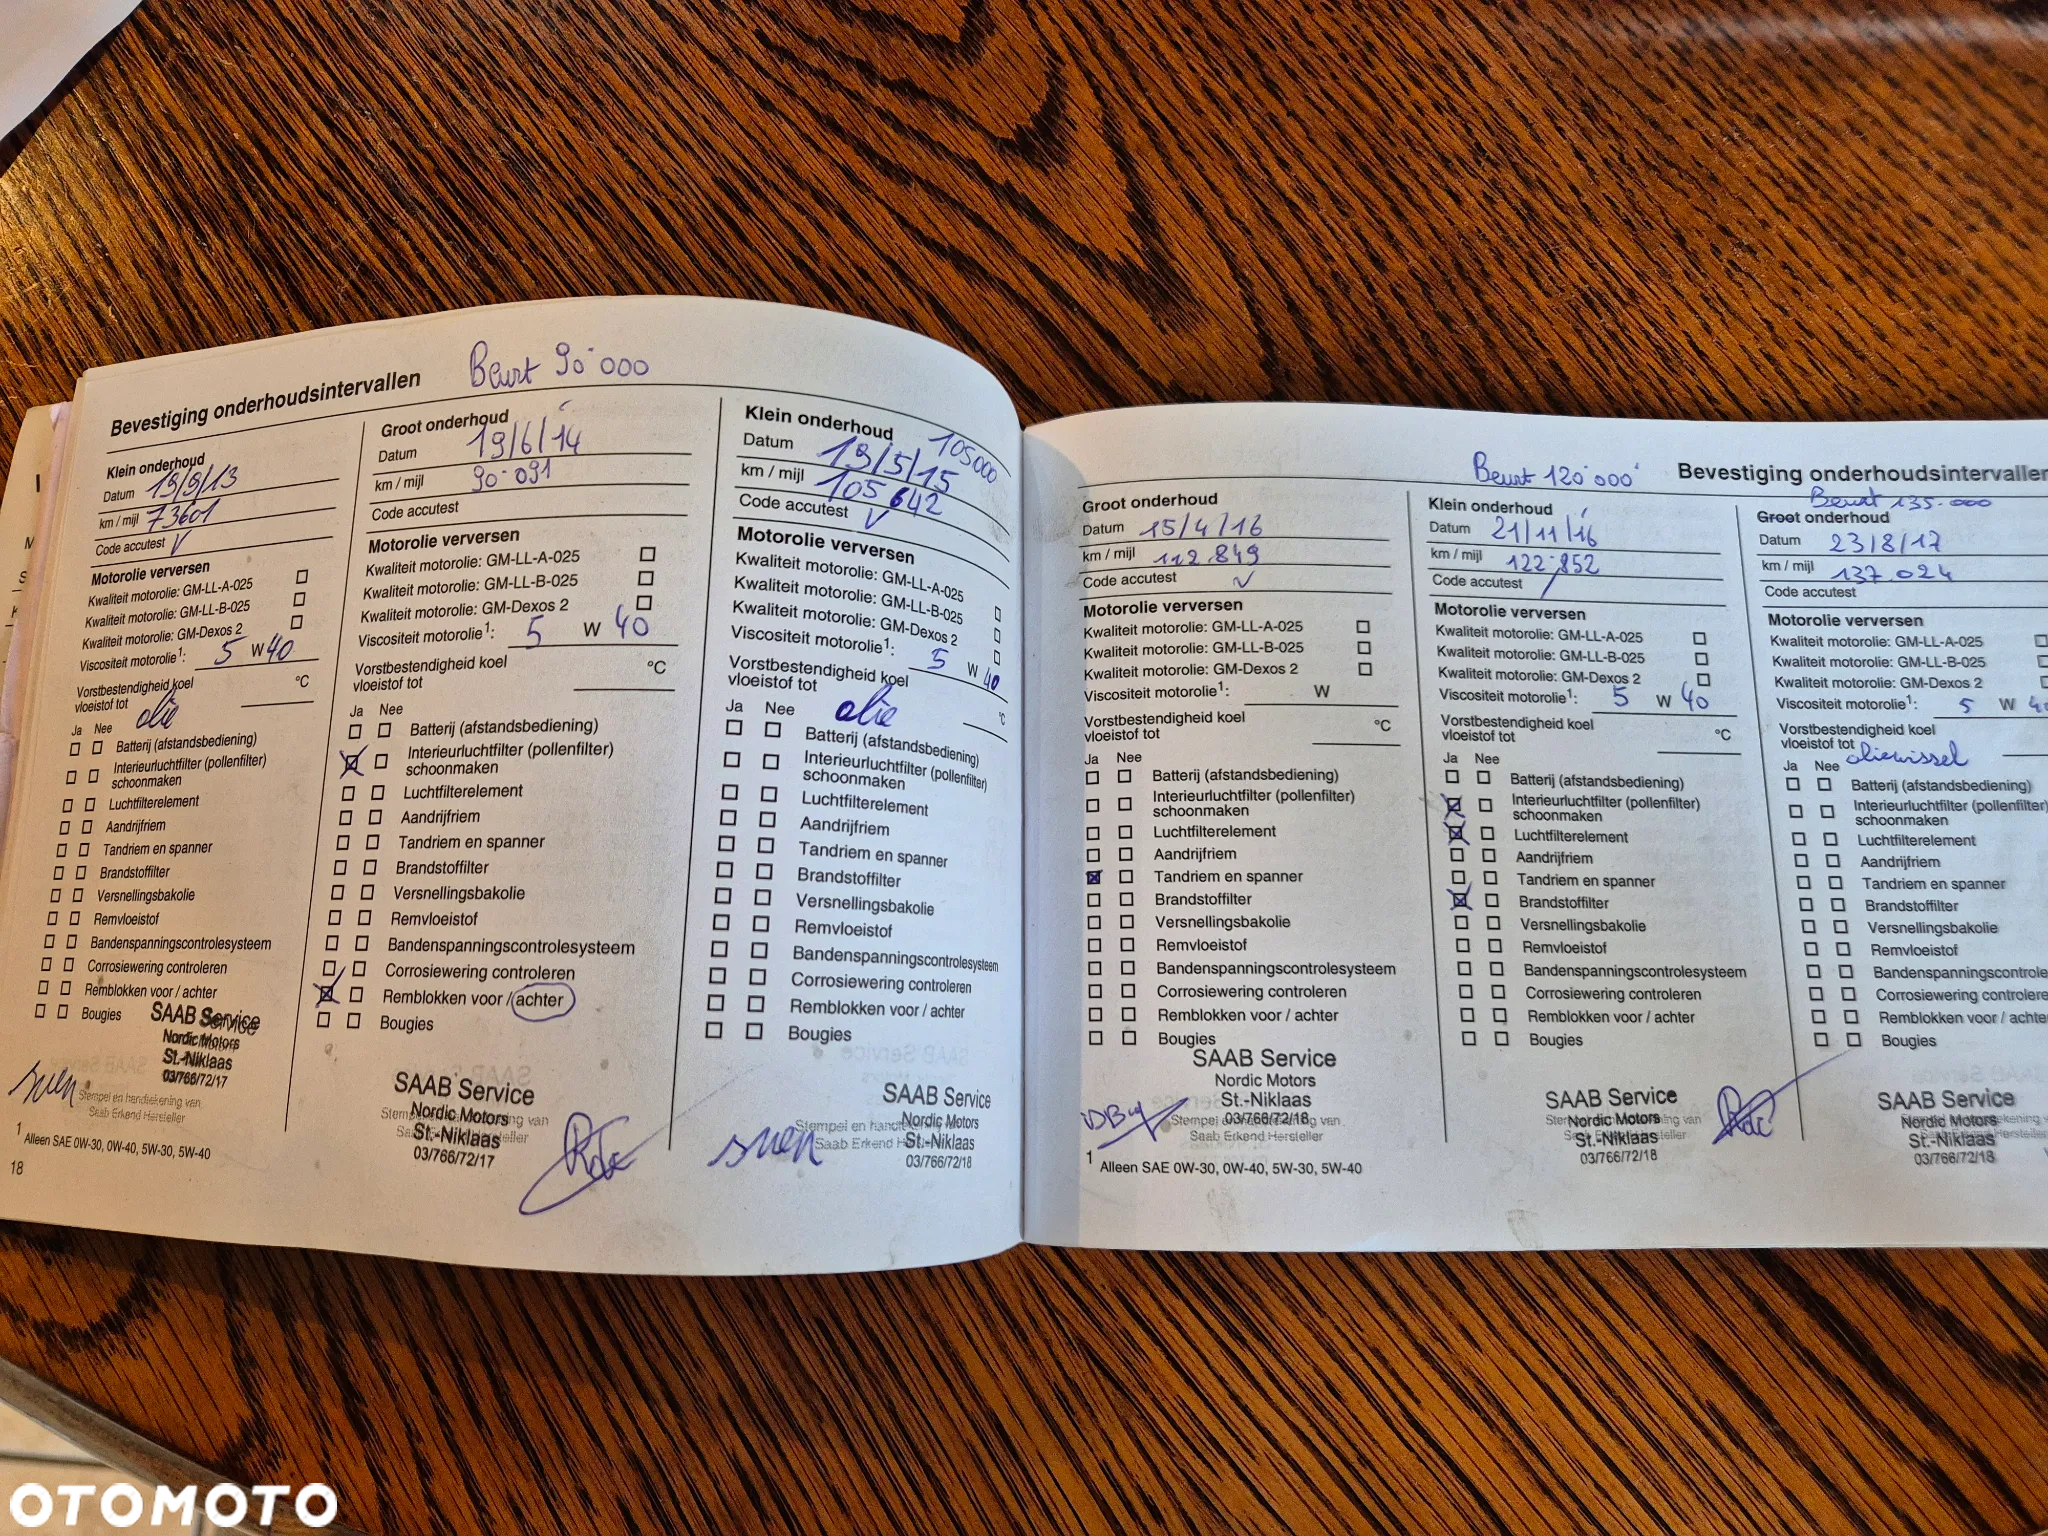 Bevestiging onderhoudsintervallen
Beurt 90.000
Klein onderhoud
Datum 19/9/13
km / mijl 73601
Code accutest √
Motorolie verversen
Kwaliteit motorolie: GM-LL-A-025
Kwaliteit motorolie: GM-LL-B-025
Kwaliteit motorolie: GM-Dexos 2
Viscositeit motorolie1: 5 W 40
Vorstbestendigheid koel
vloeistof tot °C
olie
Ja Nee
Batterij (afstandsbediening)
Interieurluchtfilter (pollenfilter)
schoonmaken
Luchtfilterelement
Aandrijfriem
Tandriem en spanner
Brandstoffilter
Versnellingsbakolie
Remvloeistof
Bandenspanningscontrolesysteem
Corrosiewering controleren
Remblokken voor / achter
Bougies
SAAB Service
Nordic Motors
St.-Niklaas
03/766/72/17
sven
Stempel en handtekening van
Saab Erkend Hersteller
1 Alleen SAE 0W-30, 0W-40, 5W-30, 5W-40
18
Groot onderhoud
Datum 19/6/14
km / mijl 90.091
Code accutest
Motorolie verversen
Kwaliteit motorolie: GM-LL-A-025
Kwaliteit motorolie: GM-LL-B-025
Kwaliteit motorolie: GM-Dexos 2
Viscositeit motorolie1: 5 W 40
Vorstbestendigheid koel
vloeistof tot °C
Ja Nee
Batterij (afstandsbediening)
Interieurluchtfilter (pollenfilter)
schoonmaken
Luchtfilterelement
Aandrijfriem
Tandriem en spanner
Brandstoffilter
Versnellingsbakolie
Remvloeistof
Bandenspanningscontrolesysteem
Corrosiewering controleren
Remblokken voor / achter
Bougies
SAAB Service
Nordic Motors
St.-Niklaas
03/766/72/17
Klein onderhoud
105000
Datum 19/5/15
km / mijl 105642
Code accutest √
Motorolie verversen
Kwaliteit motorolie: GM-LL-A-025
Kwaliteit motorolie: GM-LL-B-025
Kwaliteit motorolie: GM-Dexos 2
Viscositeit motorolie1: 5 W 40
Vorstbestendigheid koel
vloeistof tot °C
olie
Ja Nee
Batterij (afstandsbediening)
Interieurluchtfilter (pollenfilter)
schoonmaken
Luchtfilterelement
Aandrijfriem
Tandriem en spanner
Brandstoffilter
Versnellingsbakolie
Remvloeistof
Bandenspanningscontrolesysteem
Corrosiewering controleren
Remblokken voor / achter
Bougies
SAAB Service
Nordic Motors
St.-Niklaas
03/766/72/18
sven
Beurt 120.000
Bevestiging onderhoudsintervallen
Groot onderhoud
Datum 15/4/16
km / mijl 112.849
Code accutest √
Motorolie verversen
Kwaliteit motorolie: GM-LL-A-025
Kwaliteit motorolie: GM-LL-B-025
Kwaliteit motorolie: GM-Dexos 2
Viscositeit motorolie1: W
Vorstbestendigheid koel
vloeistof tot °C
Ja Nee
Batterij (afstandsbediening)
Interieurluchtfilter (pollenfilter)
schoonmaken
Luchtfilterelement
Aandrijfriem
Tandriem en spanner
Brandstoffilter
Versnellingsbakolie
Remvloeistof
Bandenspanningscontrolesysteem
Corrosiewering controleren
Remblokken voor / achter
Bougies
SAAB Service
Nordic Motors
St.-Niklaas
03/766/72/18
Stempel en handtekening van
Saab Erkend Hersteller
1 Alleen SAE 0W-30, 0W-40, 5W-30, 5W-40
Klein onderhoud
Datum 21/11/16
km / mijl 122.852
Code accutest
Motorolie verversen
Kwaliteit motorolie: GM-LL-A-025
Kwaliteit motorolie: GM-LL-B-025
Kwaliteit motorolie: GM-Dexos 2
Viscositeit motorolie1: 5 W 40
Vorstbestendigheid koel
vloeistof tot °C
Ja Nee
Batterij (afstandsbediening)
Interieurluchtfilter (pollenfilter)
schoonmaken
Luchtfilterelement
Aandrijfriem
Tandriem en spanner
Brandstoffilter
Versnellingsbakolie
Remvloeistof
Bandenspanningscontrolesysteem
Corrosiewering controleren
Remblokken voor / achter
Bougies
SAAB Service
Nordic Motors
St.-Niklaas
03/766/72/18
Beurt 135.000
Groot onderhoud
Datum 23/8/17
km / mijl 137.024
Code accutest
Motorolie verversen
Kwaliteit motorolie: GM-LL-A-025
Kwaliteit motorolie: GM-LL-B-025
Kwaliteit motorolie: GM-Dexos 2
Viscositeit motorolie1: 5 W 40
Vorstbestendigheid koel
vloeistof tot oliewissel
Ja Nee
Batterij (afstandsbediening)
Interieurluchtfilter (pollenfilter)
schoonmaken
Luchtfilterelement
Aandrijfriem
Tandriem en spanner
Brandstoffilter
Versnellingsbakolie
Remvloeistof
Bandenspanningscontrole
Corrosiewering controle
Remblokken voor / achter
Bougies
SAAB Service
Nordic Motors
St.-Niklaas
03/766/72/18
OTOMOTO